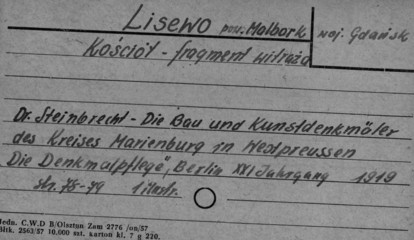 Lisewo pow. Malbork woj. Gdańsk
Kościół - fragment witraża
Dr. Steinbrecht - Die Bau und Kunstdenkmäler
des Kreises Marienburg in Westpreussen
Die Denkmalpflege", Berlin XXI Jahrgang 1919
str. 75-79 1 ilustr.
Hedn. C.W.D B/Olsztyn Zam 2776 /un/57
Bltk. 2563/57 10.000 szt. karton kl. 7 g 220.